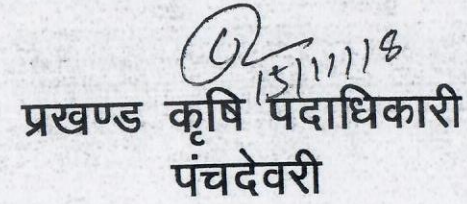 15/11/18
प्रखण्ड कृषि पदाधिकारी
पंचदेवरी